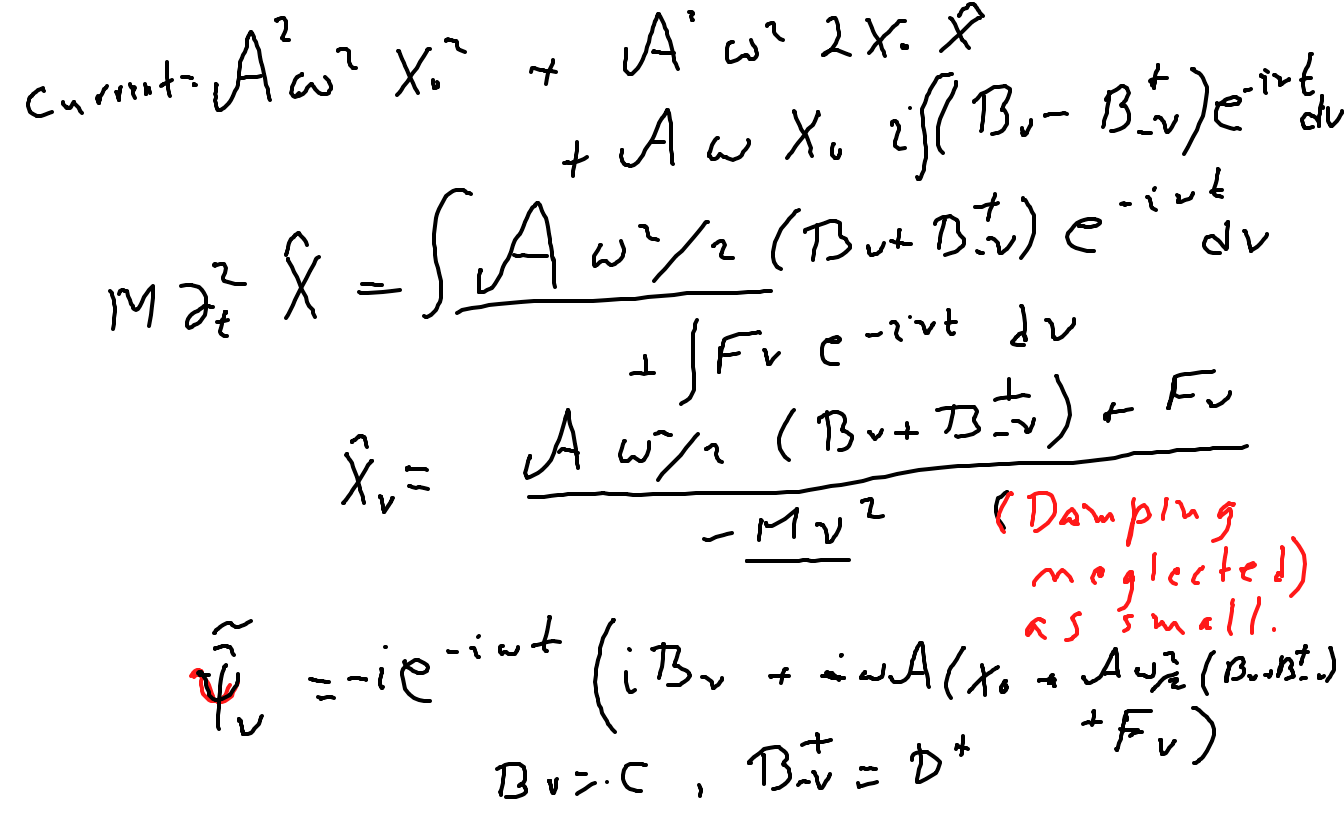 Current = A² ω² X₀² + A² ω² 2X₀ X̂
+ A ω X₀ i∫(B_ν − B⁺_−ν) e^{-iνt} dν
M ∂_t² X̂ = ∫ A ω²/2 (B_ν + B⁺_−ν) e^{-iνt} dν
+ ∫ F_ν e^{-iνt} dν
X̂_ν = A ω²/2 (B_ν + B⁺_−ν) + F_ν
− M ν² (Damping
neglected)
as small.
ψ̃_ν = −i e^{-iωt} (i B_ν + −iωA(X₀ + A ω²/2 (B_ν + B⁺_−ν)
+ F_ν)
B_ν = C , B⁺_−ν = D⁺